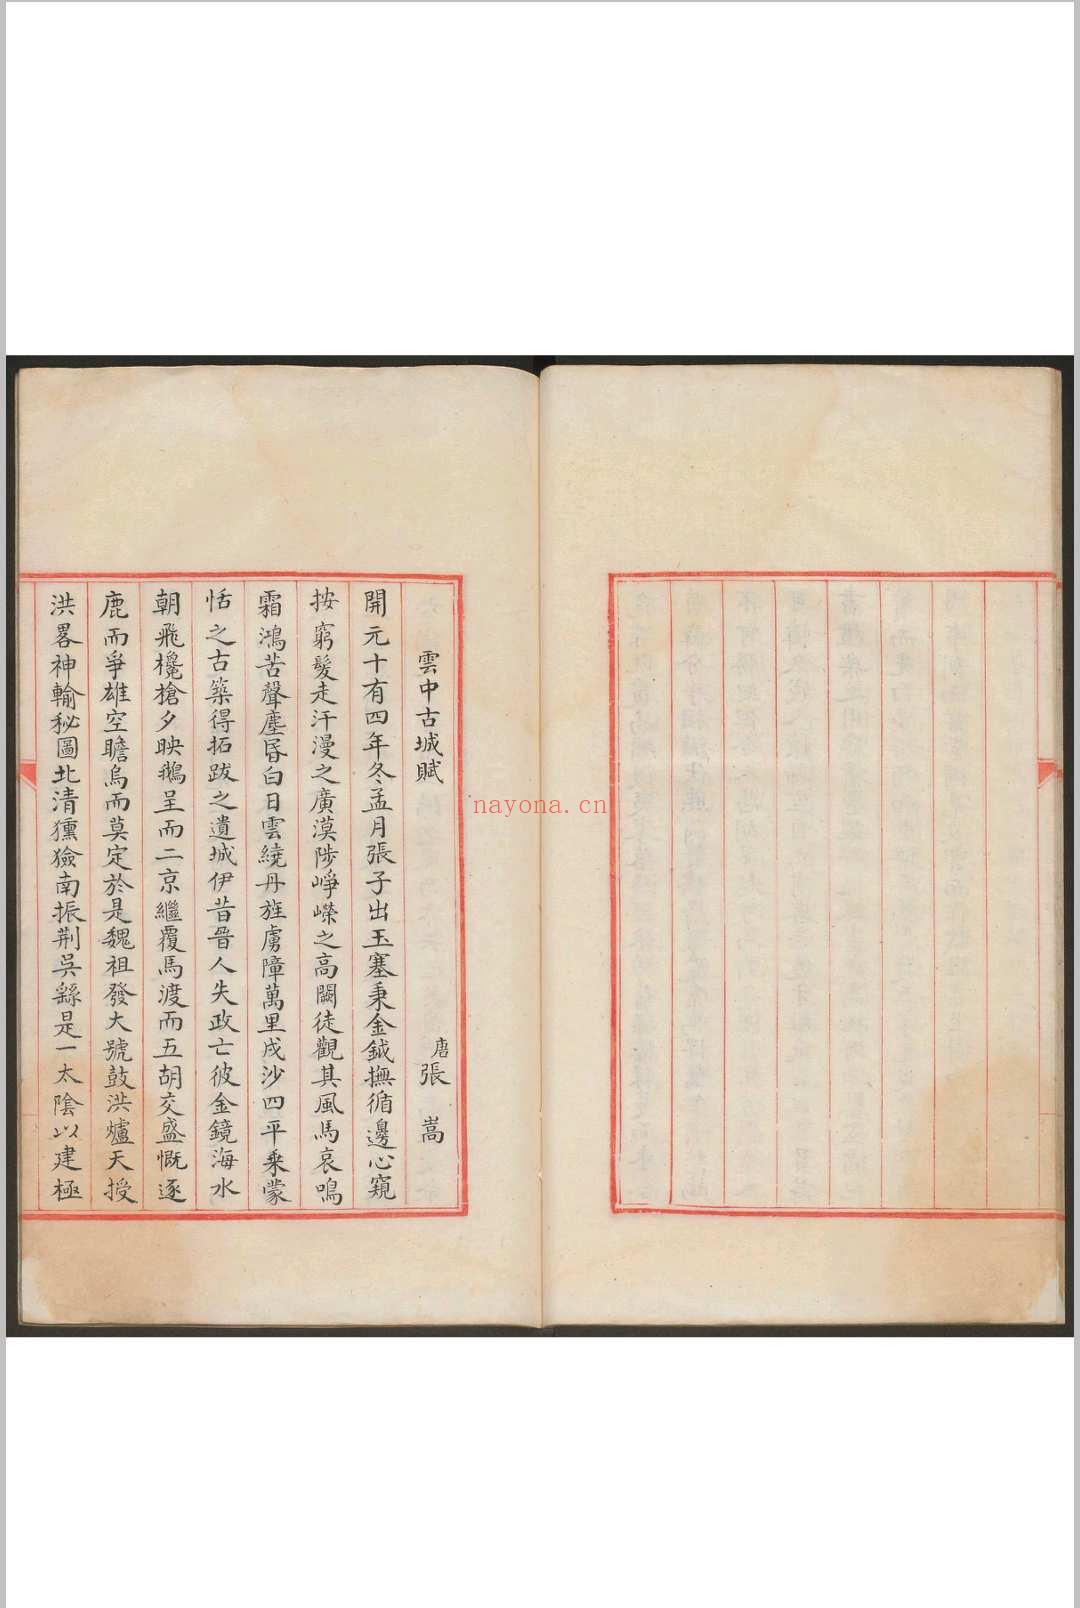 雲中古城賦
唐張嵩
開元十有四年冬孟月張子出玉塞秉金鉞撫循邊心窺
按窮髮走汗漫之廣漠陟崢嶸之高闕徒觀其風馬哀鳴
霜鴻苦聲塵昏白日雲繞丹旌虜障萬里戍沙四平乘蒙
恬之古築得拓跋之遺城伊昔晉人失政亡彼金鏡海水
朝飛欃槍夕映鵝呈而二京繼覆馬渡而五胡交盛慨逐
鹿而爭雄空瞻烏而莫定於是魏祖發大號鼓洪爐天授
洪畧神輸秘圖北清獯獫南振荆吳繇是一太陰以建極
nayona.cn